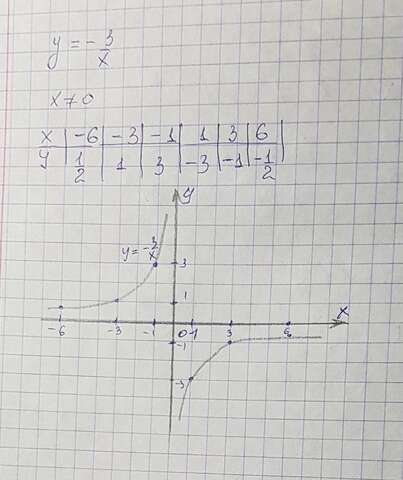 y = - 3/x
x ≠ 0
x | -6 | -3 | -1 | 1 | 3 | 6
y | 1/2 | 1 | 3 | -3 | -1 | -1/2
y
y = - 3/x
3
1
x
-6 -3 -1 0 1 3 6
-1
-3